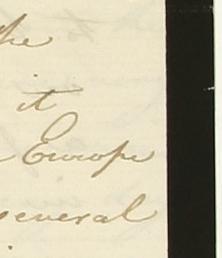 the
it
Europe
several